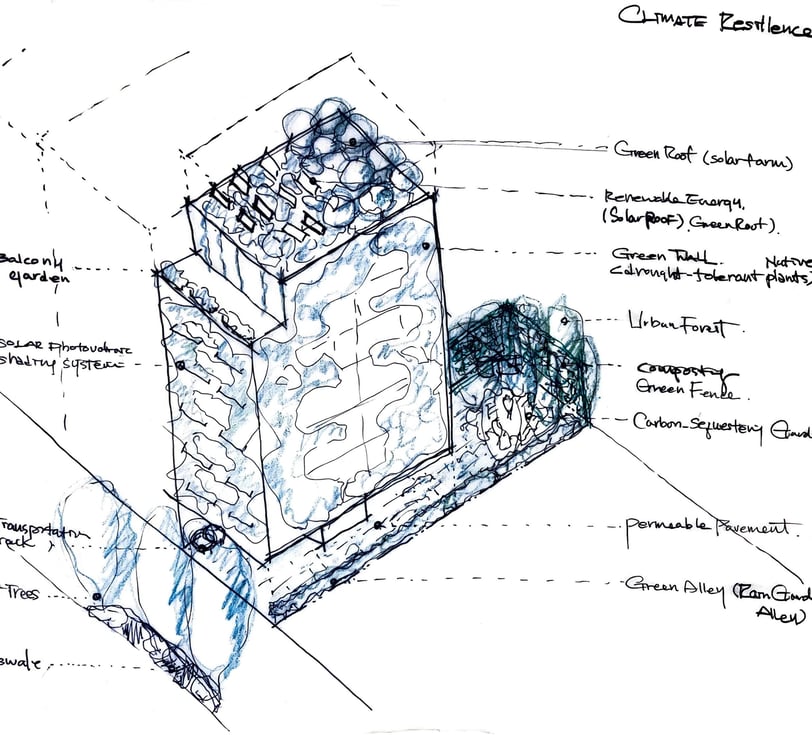 CLIMATE Resilience
Green Roof (solar farm)
Renewable Energy.
(Solar Roof) Green Roof).
Green Wall. Native
(drought-tolerant plants)
Urban Forest.
composting
Green Fence.
Carbon-Sequestering Gard
permeable Pavement.
Green Alley (Rain Gard
Alley)
Balcony
garden
SOLAR Photovoltaic
shading system
Transportation
rack
Trees
swale